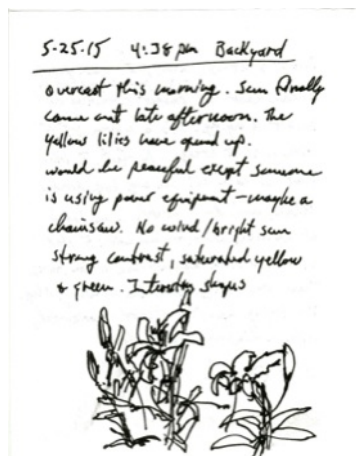 5-25-15 4:38 pm Backyard
overcast this morning. Sun finally
came out late afternoon. The
yellow lilies have opened up.
would be peaceful except someone
is using power equipment - maybe a
chainsaw. No wind/bright sun
strong contrast, saturated yellow
& green. Interesting shapes